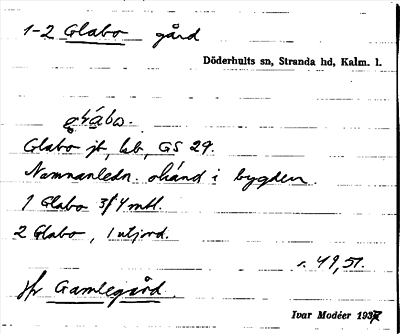 1-2 Glabo gård
Döderhults sn, Stranda hd, Kalm. l.
Glabo jb, kb, GS 29.
Namnanledn. okänd i bygden.
1 Glabo 3/4 mtl.
2 Glabo, 1 utjord.
s. 49, 51.
Jfr Gamlegård.
Ivar Modéer 1937